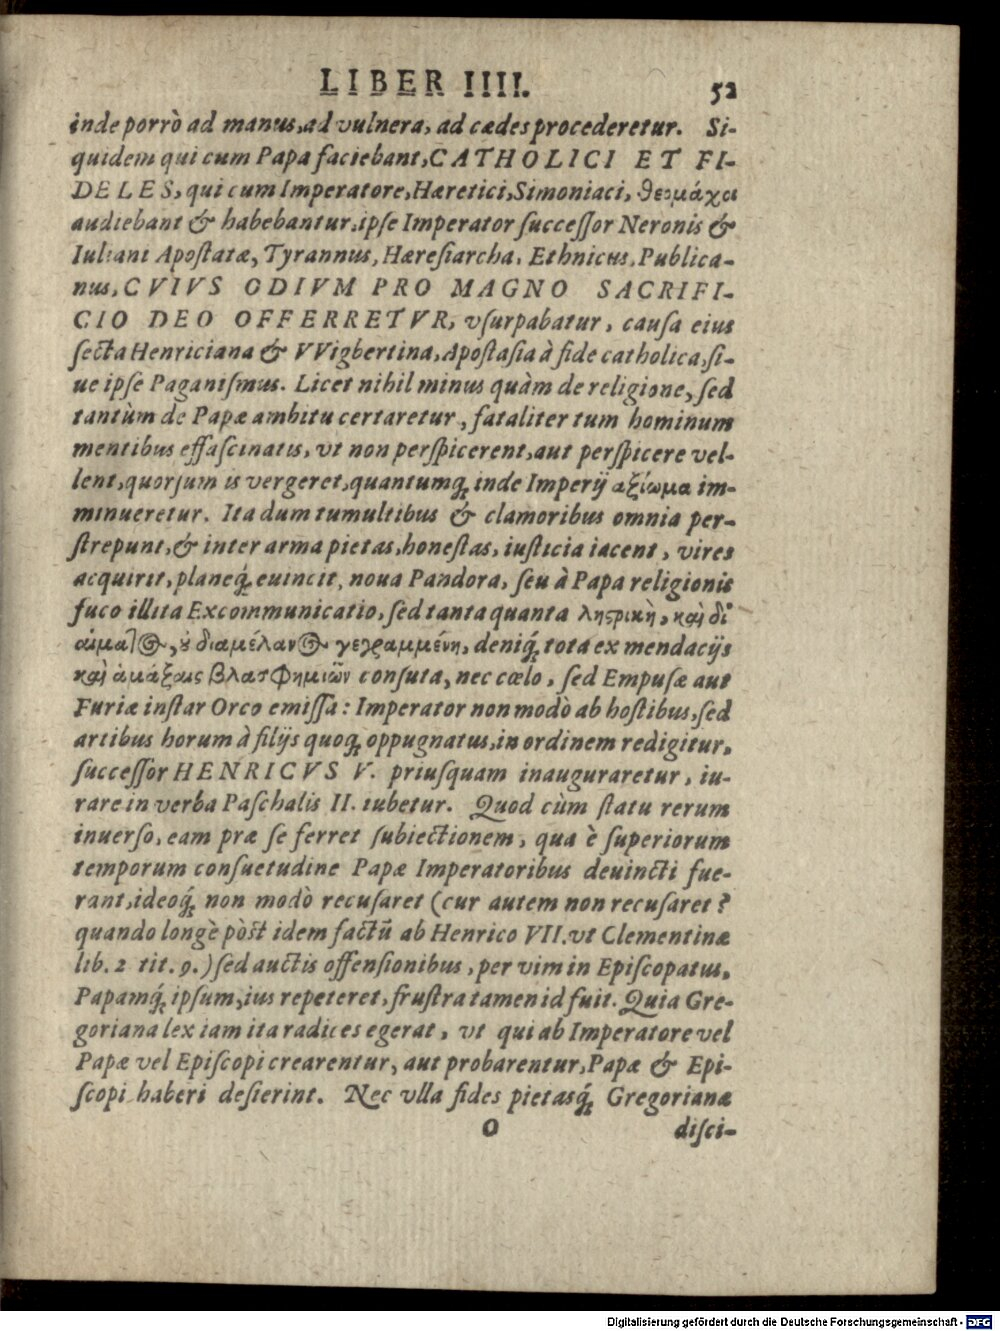 LIBER IIII. 52
inde porrò ad manus, ad vulnera, ad cædes procederetur. Si-
quidem qui cum Papa faciebant, CATHOLICI ET FI-
DELES, qui cum Imperatore, Hæretici, Simoniaci, θεομάχοι
audiebant & habebantur, ipſe Imperator ſucceſſor Neronis &
Iuliani Apoſtatæ, Tyrannus, Hæreſiarcha, Ethnicus, Publica-
nus, CVIVS ODIVM PRO MAGNO SACRIFI-
CIO DEO OFFERRETVR, vſurpabatur, cauſa eius
ſecta Henriciana & VVigbertina, Apoſtaſia à fide catholica, ſi-
ue ipſe Paganiſmus. Licet nihil minus quàm de religione, ſed
tantùm de Papæ ambitu certaretur, fataliter tum hominum
mentibus effaſcinatis, vt non perſpicerent, aut perſpicere vel-
lent, quorſum is vergeret, quantumq́; inde Imperij ἀξίωμα im-
minueretur. Ita dum tumultibus & clamoribus omnia per-
ſtrepunt, & inter arma pietas, honeſtas, iuſticia iacent, vires
acquirit, planeq́; euincit, noua Pandora, ſeu à Papa religionis
fuco illita Excommunicatio, ſed tanta quanta ληϛρικὴ, καὶ δι'
αἵματ〇, ȣ̓ διαμέλαν〇 γεγραμμένη, deniq́; tota ex mendacijs
καὶ ἁμάξαις βλασφημιῶν conſuta, nec cœlo, ſed Empuſæ aut
Furiæ inſtar Orco emiſſa: Imperator non modò ab hoſtibus, ſed
artibus horum à filijs quoq; oppugnatus, in ordinem redigitur,
ſucceſſor HENRICVS V. priuſquam inauguraretur, iu-
rare in verba Paſchalis II. iubetur. Quod cùm ſtatu rerum
inuerſo, eam præ ſe ferret ſubiectionem, qua è ſuperiorum
temporum conſuetudine Papæ Imperatoribus deuincti fue-
rant, ideoq́; non modò recuſaret (cur autem non recuſaret?
quando longè pòſt idem factū ab Henrico VII. vt Clementinæ
lib. 2 tit. 9.) ſed auctis offenſionibus, per vim in Epiſcopatus,
Papamq́; ipſum, ius repeteret, fruſtra tamen id fuit. Quia Gre-
goriana lex iam ita radices egerat, vt qui ab Imperatore vel
Papæ vel Epiſcopi crearentur, aut probarentur, Papæ & Epi-
ſcopi haberi deſierint. Nec vlla fides pietasq́; Gregorianæ
O diſci-
Digitalisierung gefördert durch die Deutsche Forschungsgemeinschaft - DFG